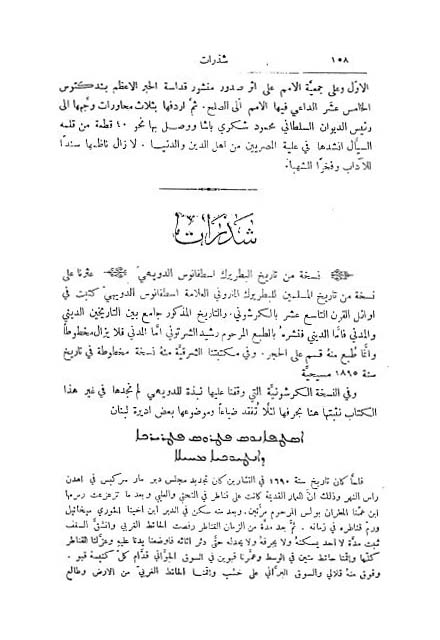 ١٥٨ شذرات
الاوّل وعلى جمعيَّة الامم على اثر صدور منشور قداسة الحبر الاعظم بندكتوس
الخامس عشر الداعي فيها الامم الى الصلح. ثمَّ اردفها بثلاث محاورات وجَّهها الى
رئيس الديوان السلطاني محمود شكري باشا ووصل بها نحو ٤٠ قطعة من قلمه
السيَّال انشدها في علية المصريين من اهل الدين والدنيا. لا زال ناظمها سندًا
للآداب وفخرًا الشهبا.
شذرات
نسخة من تاريخ البطريرك اسطفانوس الدويهي عثرنا على
نسخة من تاريخ المسلمين للبطريرك الماروني العلَّامة اسطفانوس الدويهيّ كتبت في
اوائل القرن التاسع عشر بالكرشوني. والتاريخ المذكور جامع بين التاريخين الديني
والمدني فامَّا الديني فنشرهُ بالطبع المرحوم رشيد الشرتوني امَّا المدني فلا يزال مخطوطًا
وانَّما طُبع منهُ قسم على الحجر. وفي مكتبتنا الشرقيَّة منهُ نسخة مخطوطة في تاريخ
سنة ١٨٦٥ مسيحيَّة
وفي النسخة الكرشونيَّة التي وقفنا عليها نبذة للدويهي لم نجدها في غير هذا
الكتاب نثبتها هنا بحرفها لئلَّا تُفقد ضياعًا وموضوعها بعض اديرة لبنان
فلمَّا كان تاريخ سنة ١٦٩٠ في التشارين كان تجديد مجلس دير مار سركيس في اهدن
راس النهر وذلك انَّ العمار القديمة كانت على قناطر في التحتي والعلي وبعد ما تزعزعت رممها
ابن عمّنا المطران بولس المرحوم مرَّتين. وبعده منه سكن في الدير ابن اخينا الخوري ميخائيل
ورم قناطره في زمانه. ثمَّ بعد مدَّة من الزمان القناطر رفصت الحائط الغربي وانشقَّ السقف
ثبت مدَّة لا احد يسكنهُ ولا يجرفهُ ولا يحدلهُ حتَّى دثر اثاثه فاوضعنا يدنا عليهِ وعزَّلنا القناطر
كلّها واقمنا حائط متين في الوسط وعمَّرنا قبوين في السوق الجوَّاني قدَّام كلّ كنيسة قبو.
وفوق منهُ قلالي والسوق البرَّاني على خشب واقمنا الحائط الغربيّ من الارض وطالع